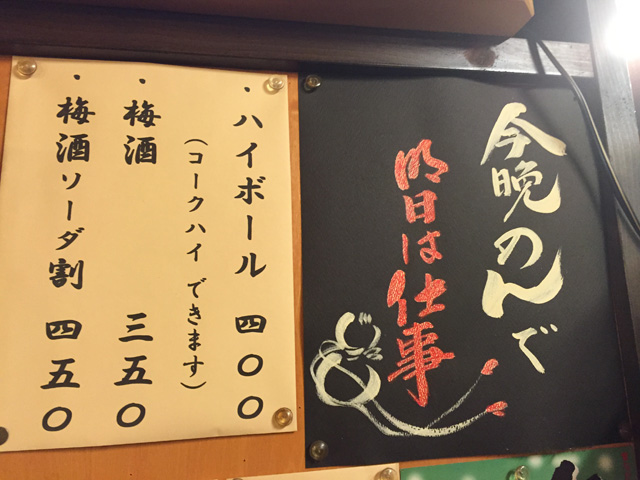 今晩のんで
明日は仕事
・ハイボール 四〇〇
(コークハイ できます)
・梅酒 三五〇
・梅酒ソーダ割 四五〇